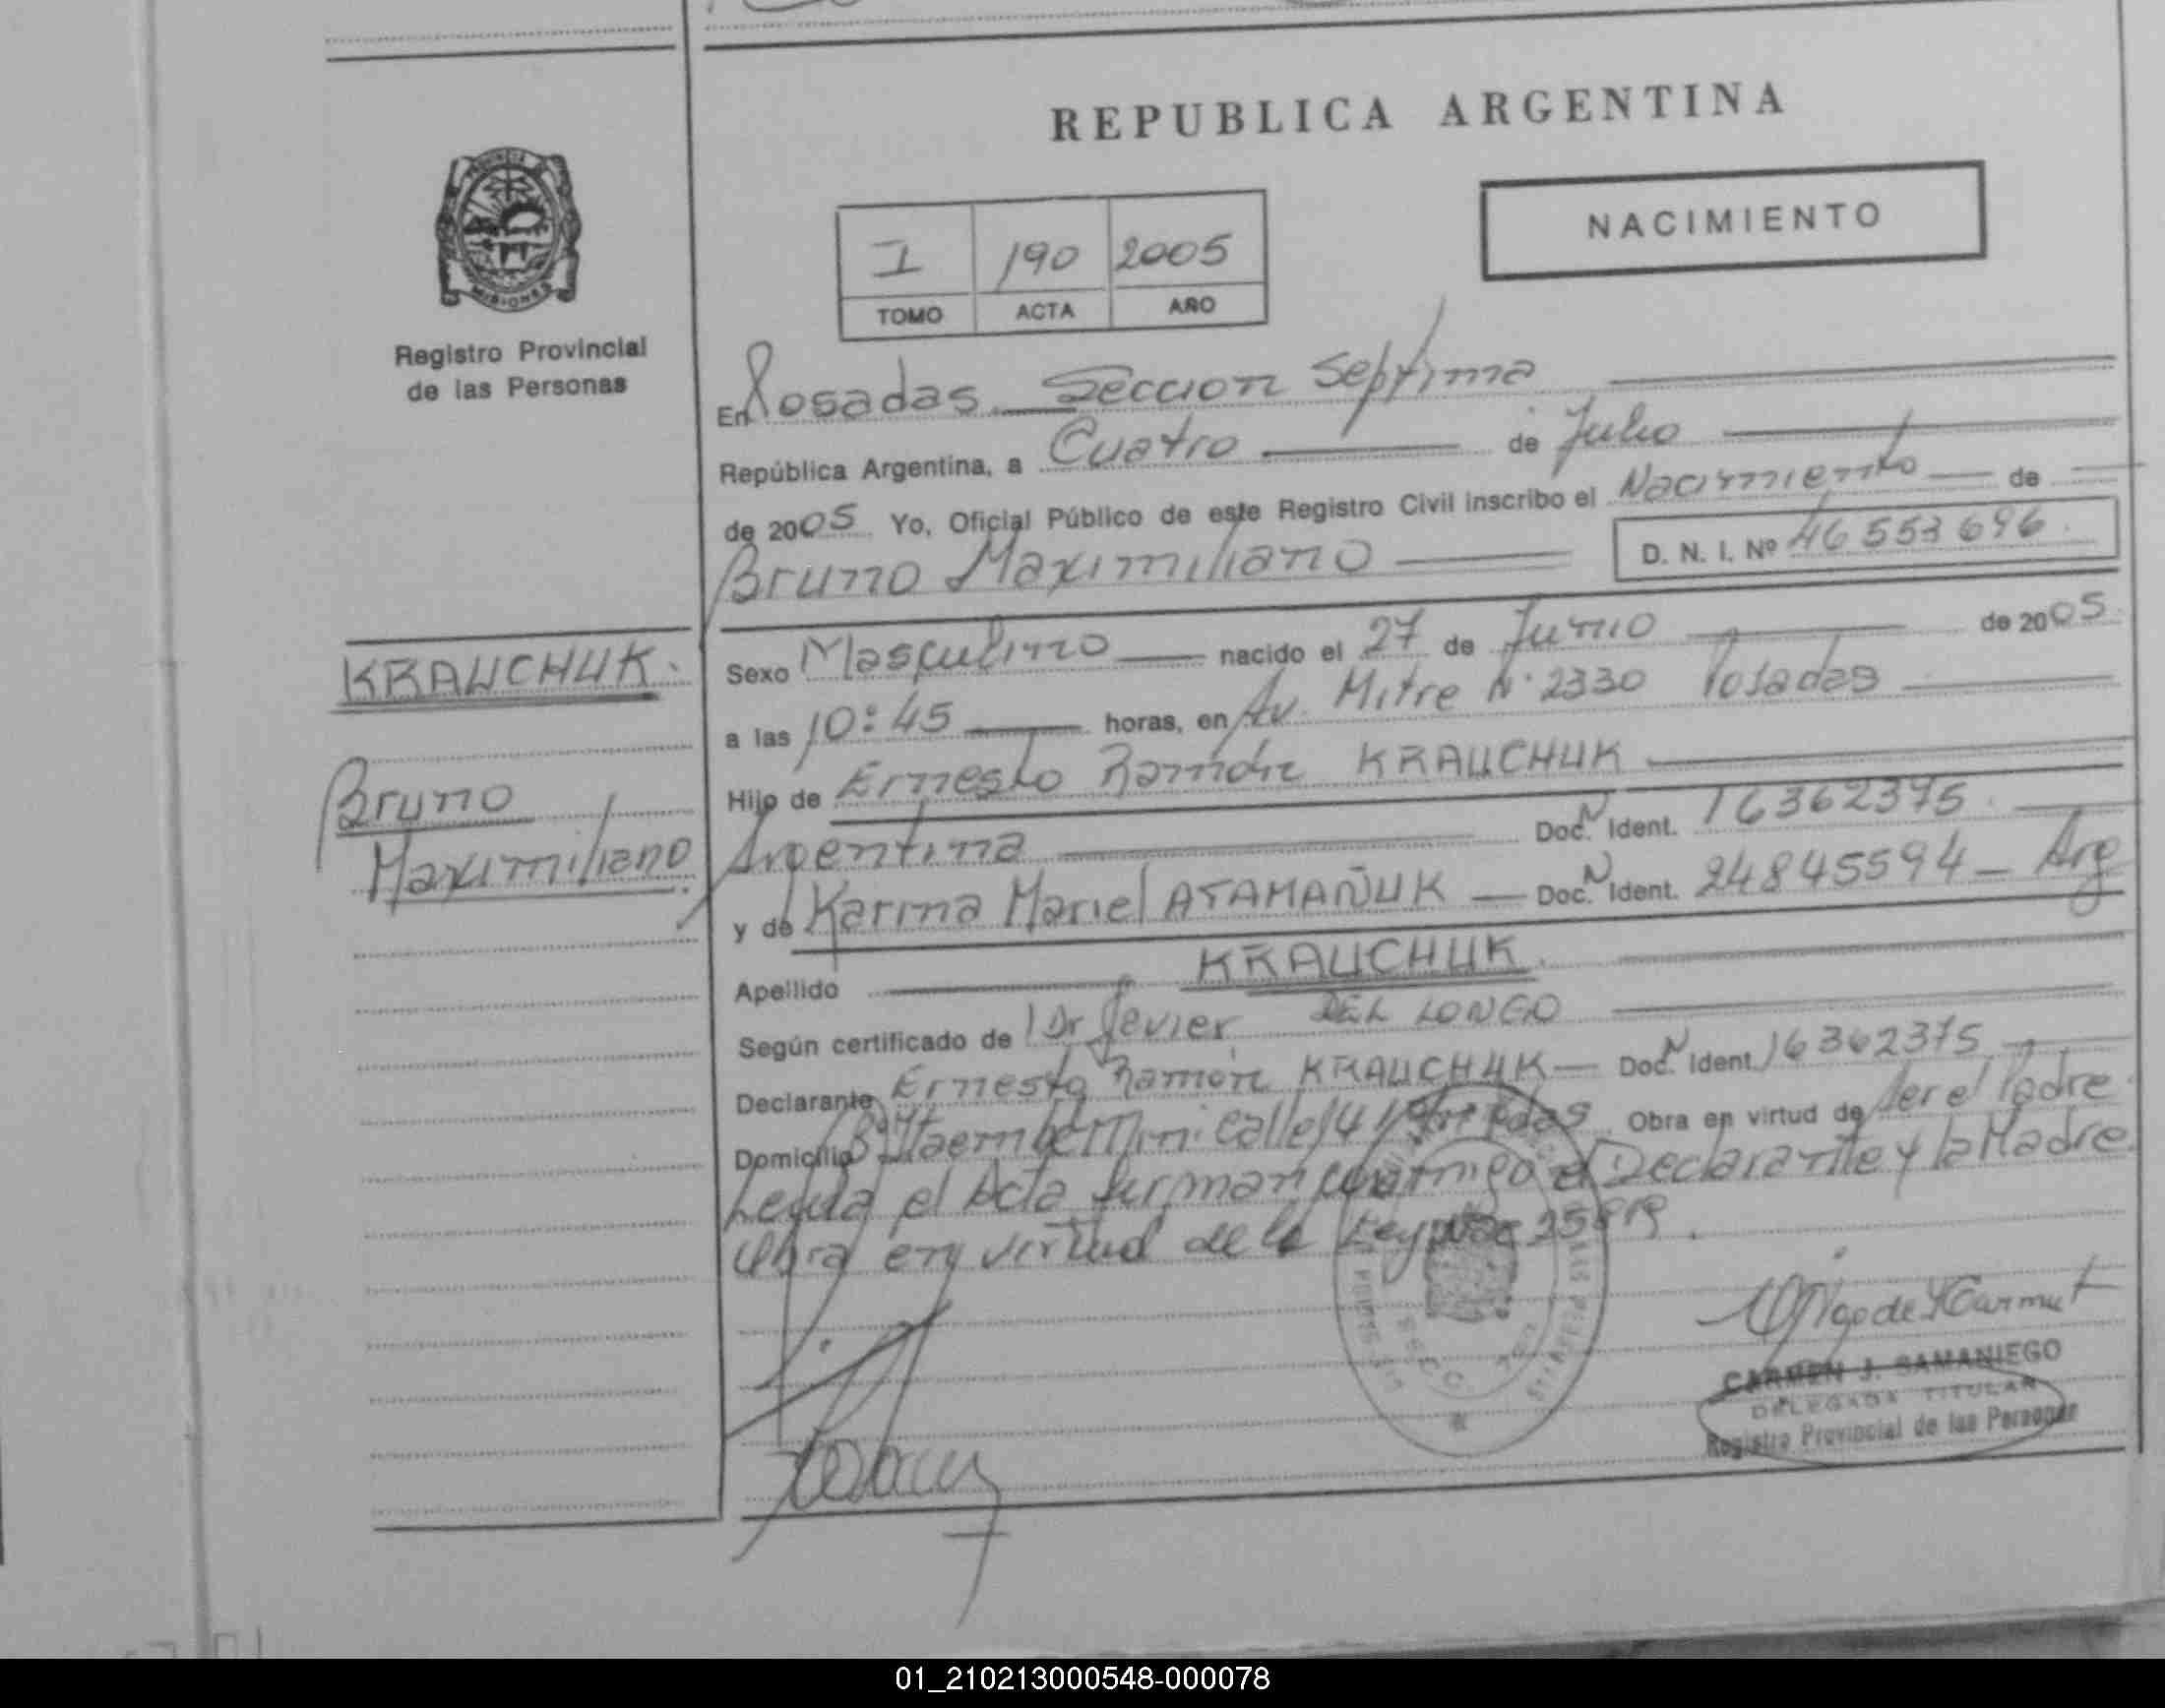 REPUBLICA ARGENTINA
NACIMIENTO
I 190 2005
TOMO ACTA AÑO
PROVINCIA
MISIONES
Registro Provincial
de las Personas
En Posadas. Seccion Septima
República Argentina, a Cuatro de Julio
de 2005 Yo, Oficial Público de este Registro Civil inscribo el Nacimiento de
Bruno Maximiliano D. N. I. Nº 46 553 696.
KRAUCHUK.
Bruno
Maximiliano
Sexo Masculino nacido el 27 de Junio de 2005
a las 10:45 horas, en Av. Mitre Nº 2330 Posadas
Hijo de Ernesto Ramón KRAUCHUK
Argentina Doc. N Ident. 16362375
y de Karina Mariel ATAMAÑUK Doc. N Ident. 24845594 Arg
Apellido KRAUCHUK.
Según certificado de Dr Javier DEL LONGO
Declarante Ernesto Ramón KRAUCHUK Doc. N Ident. 16362375
Domicilio Bº Itaembe Mini calle Pdas Obra en virtud de ser el Padre.
Leída el Acta firman conmigo el Declarante y la Madre.
Obra en virtud de la Ley
CARMEN J. SAMANIEGO
DELEGADA TITULAR
Registro Provincial de las Personas
01_210213000548-000078